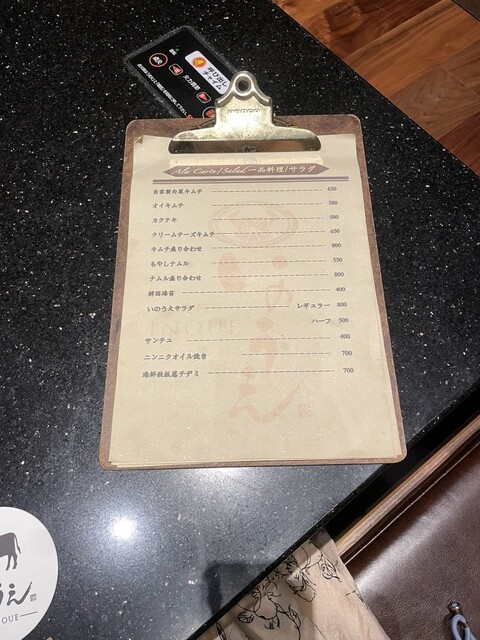 呼び出し
チャイム
火力調節
Ala Carte/Salad 一品料理/サラダ
自家製白菜キムチ 650
オイキムチ 580
カクテキ 580
クリームチーズキムチ 650
キムチ盛り合わせ 800
もやしナムル 550
ナムル盛り合わせ 800
韓国海苔 400
いのうえサラダ レギュラー 800
ハーフ 500
サンチュ 400
ニンニクオイル焼き 700
海鮮鉄板葱チヂミ 700
いのうえ
INOUE
うえ
OUE